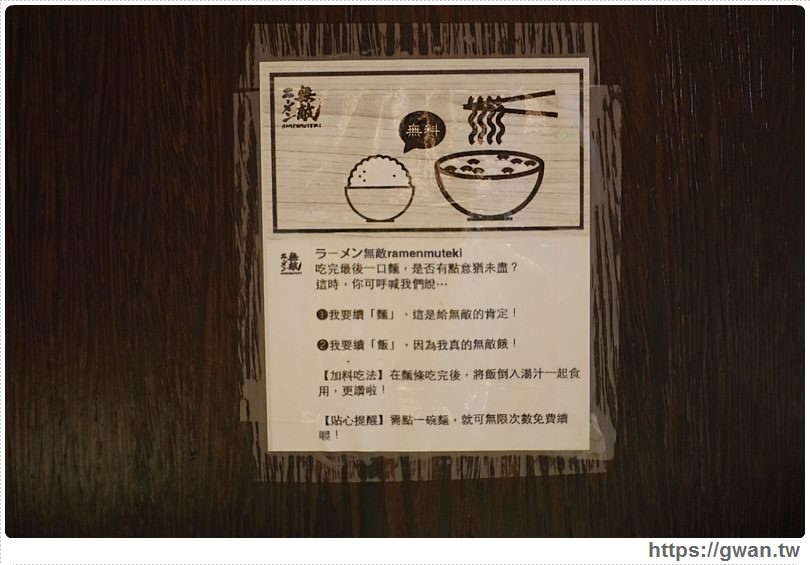 無敵
ラーメン
RAMENMUTEKI
無料
無敵
ラーメン
ラーメン無敵ramenmuteki
吃完最後一口麵，是否有點意猶未盡？
這時，你可呼喊我們說…
❶我要續「麵」，這是給無敵的肯定！
❷我要續「飯」，因為我真的無敵餓！
【加料吃法】在麵條吃完後，將飯倒入湯汁一起食
用，更讚啦！
【貼心提醒】需點一碗麵，就可無限次數免費續
喔！
https://gwan.tw